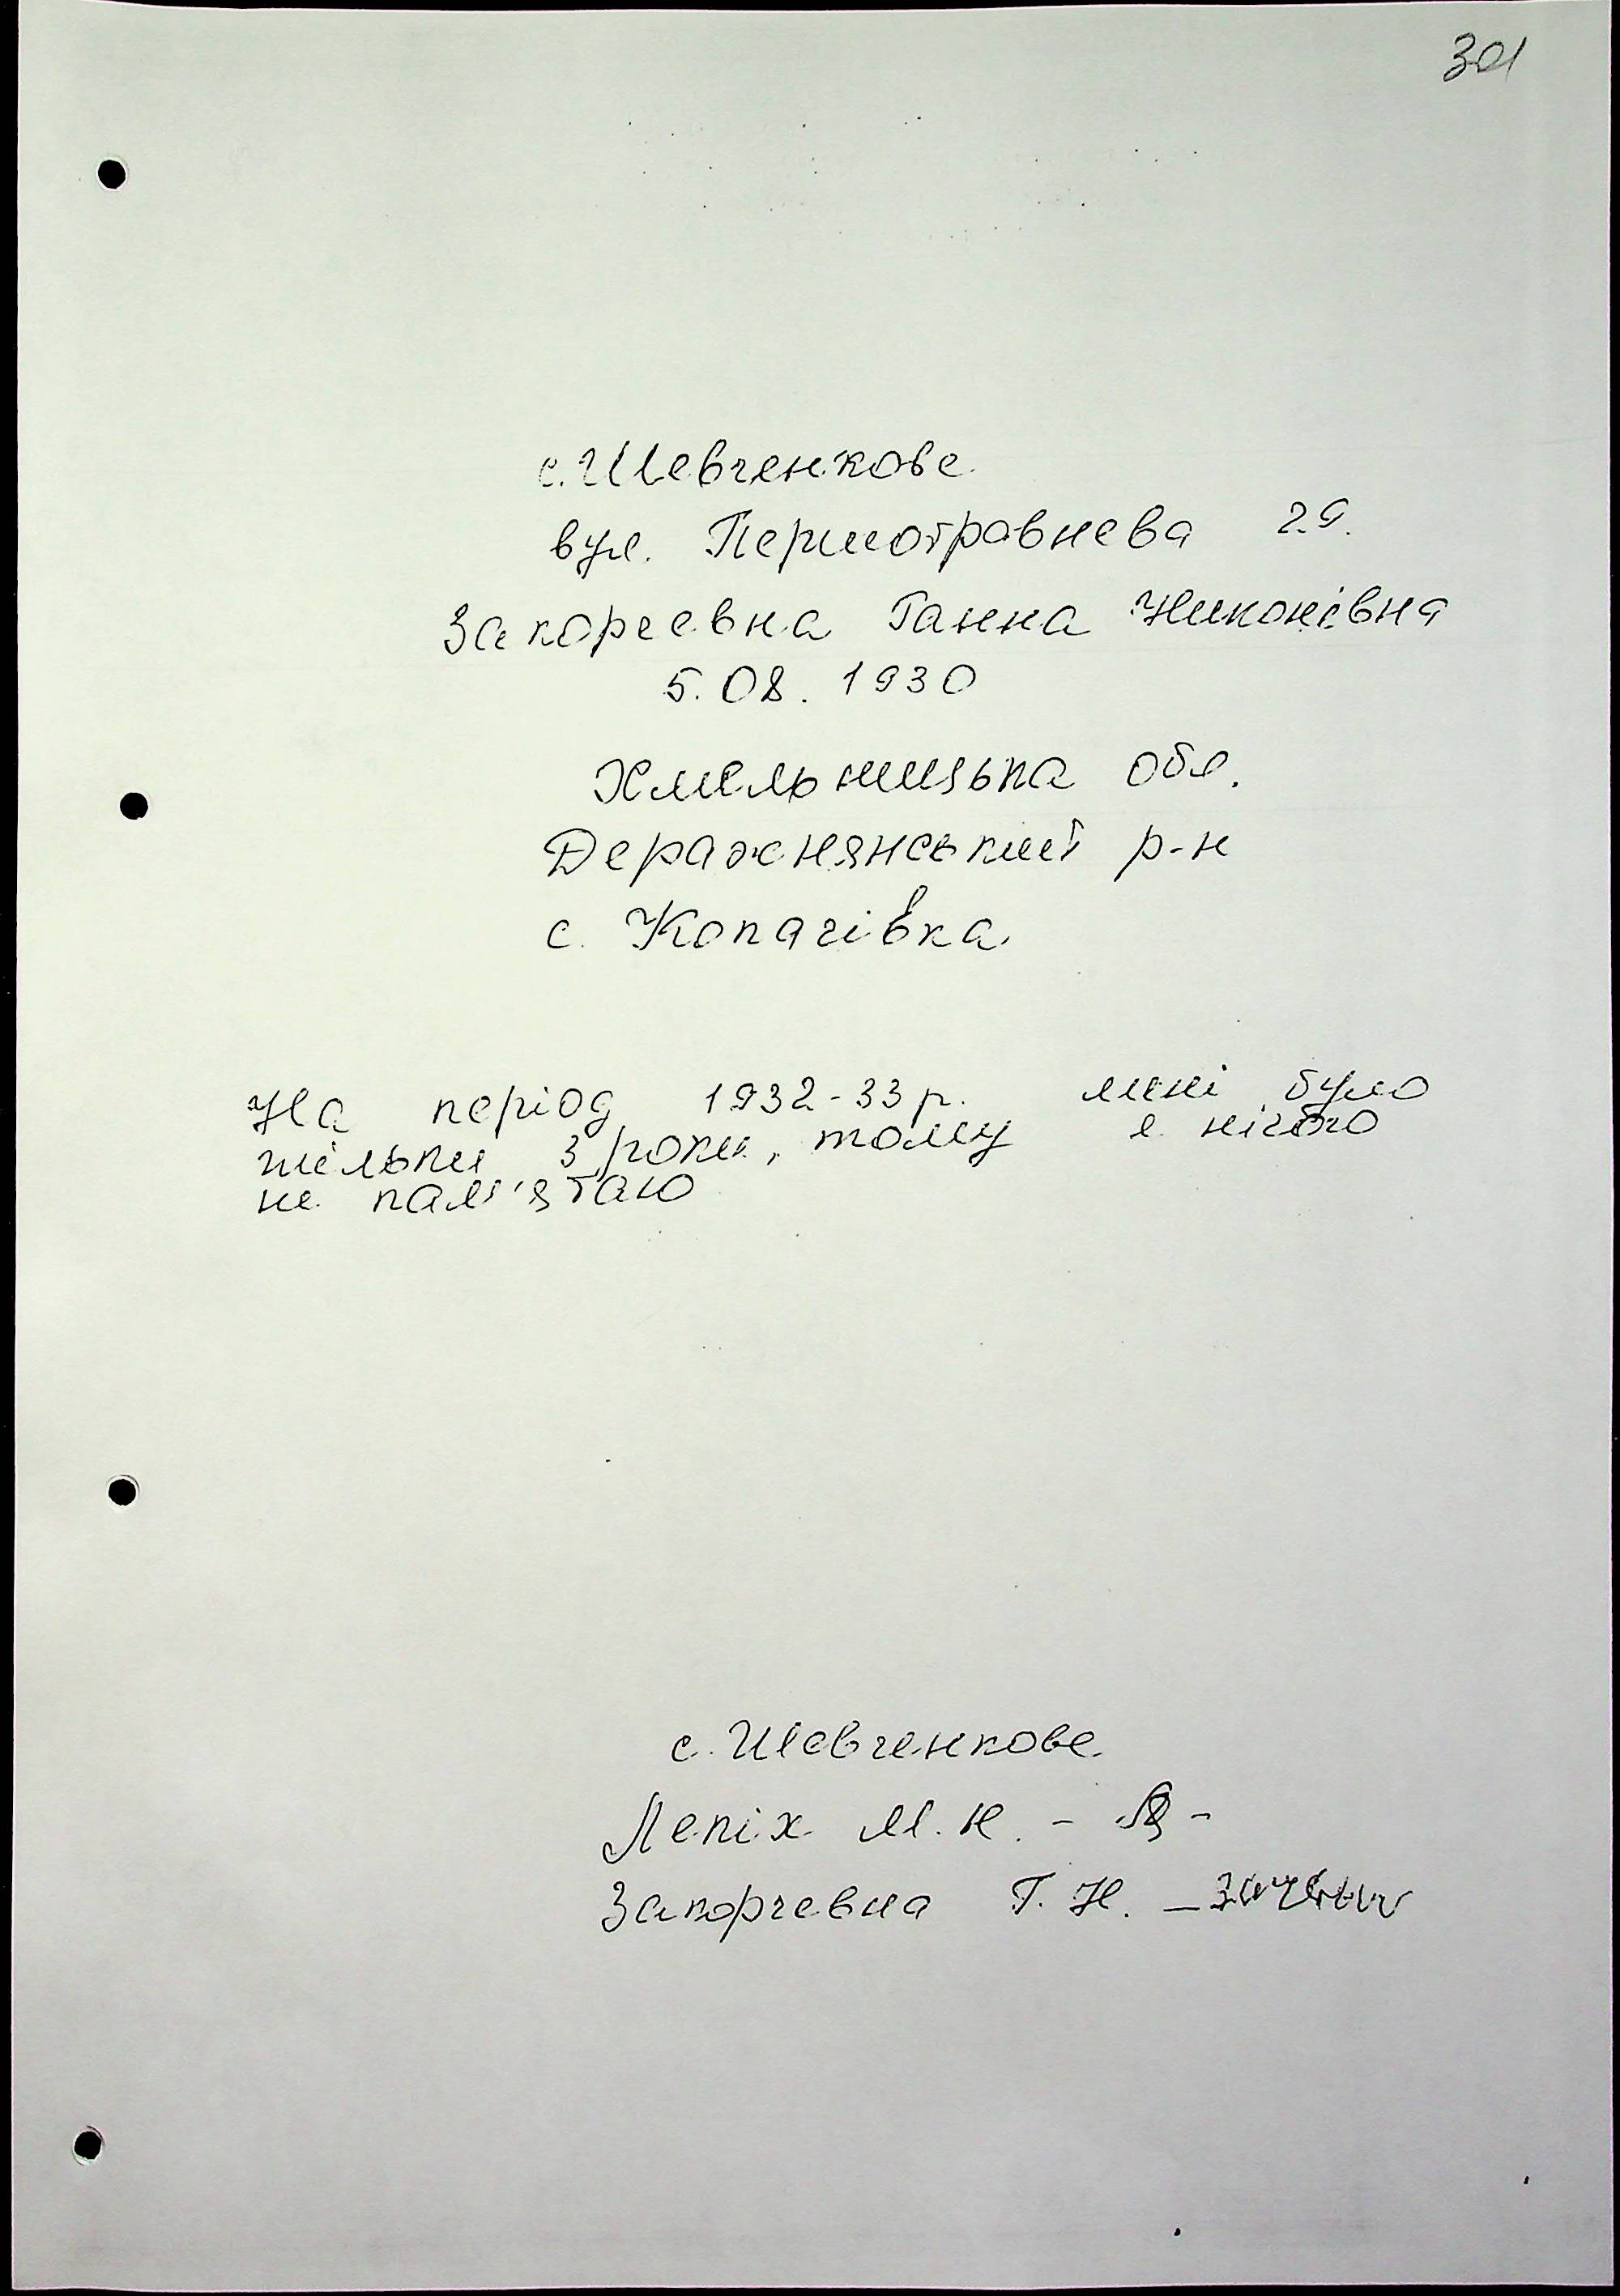 301
с. Шевченкове
вул. Першотравнева 29.
Ганна Никонівна
5.08.1930
Хмельницька обл.
Деражнянський р-н
с. Копачівка.
На період 1932-33 р. мені було
тільки 3 роки, тому я нічого
не пам'ятаю
с. Шевченкове
Лепіх М. Н. -
Г. Н.